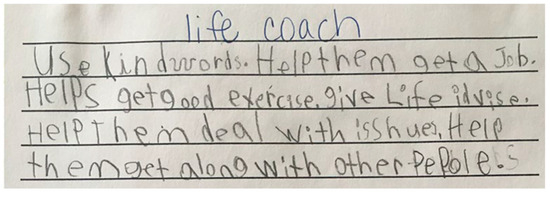 life coach
Use kind words. Help them get a Job.
Helps get good exercise. give Life idvise.
Help Them deal with isshues. Help
them get along with other Pepole.s